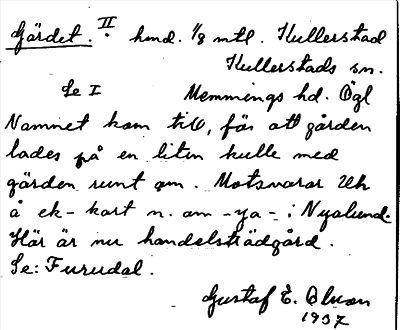 Gärdet. II hmd. 1/8 mtl. Kullerstad
Kullerstads sn.
Se I Memmings hd. Ögl
Namnet kom till, för att gården
lades på en liten kulle med
gärden runt om. Motsvarar Uh
å ek-kart n. om -ya- i Nyalund.
Här är nu handelsträdgård.
Se: Furudal.
Gustaf E. Olson
1937